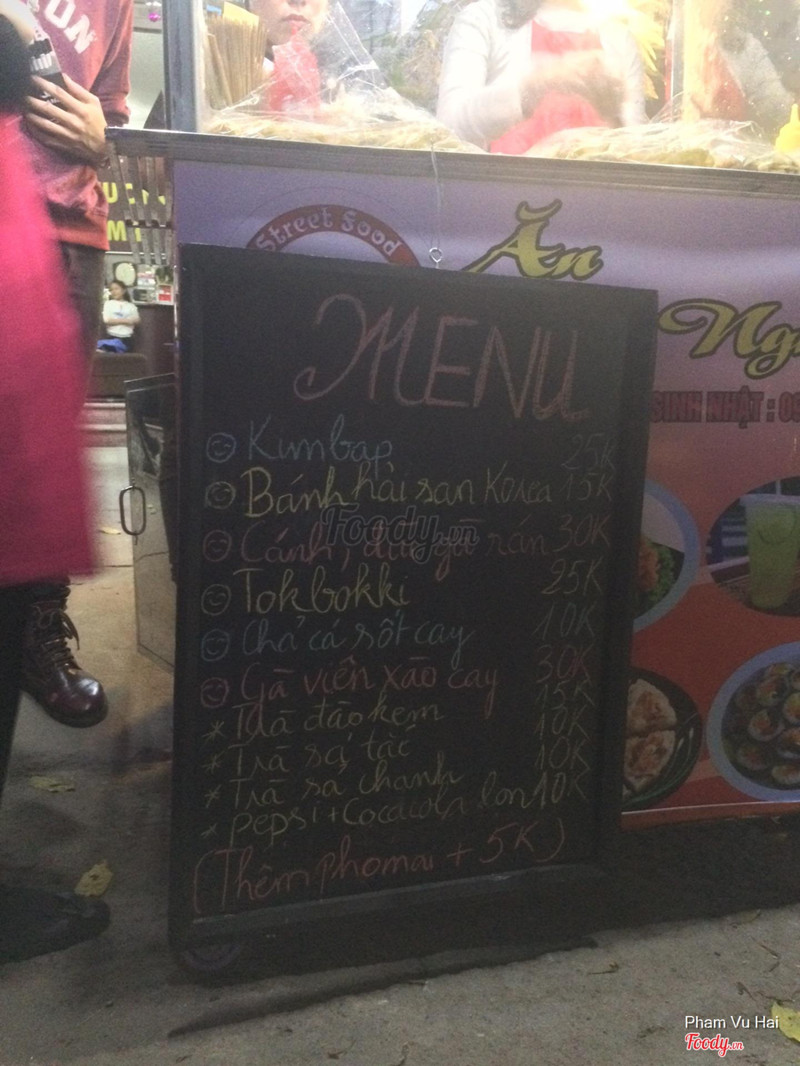 Street Food
Ăn
MENU
Kimbap 25K
Bánh hải sản Korea 15K
Foody.vn
Cánh, đùi gà rán 30K
Tokbokki 25K
Chả cá sốt cay 10K
Gà viên xào cay 30K
* Trà đào kem 15K
* Trà sả tắc 10K
* Trà sả chanh 10K
* Pepsi + Cocacola lon 10K
(Thêm phomai + 5K)
SINH NHẬT : 09
Pham Vu Hai
Foody.vn